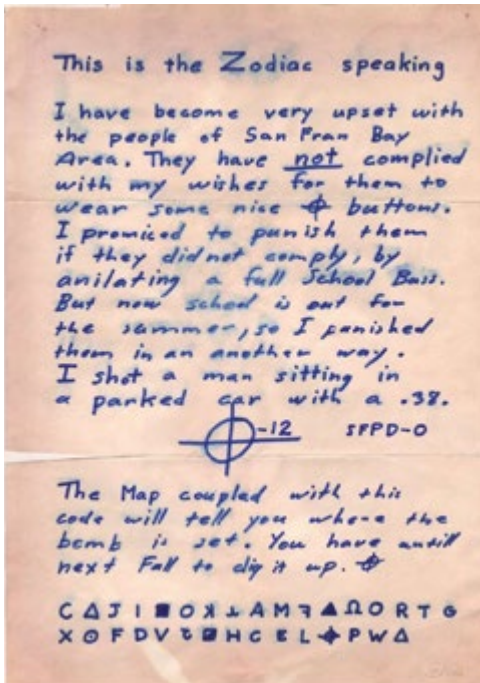 This is the Zodiac speaking
I have become very upset with
the people of San Fran Bay
Area. They have not complied
with my wishes for them to
wear some nice ⌖ buttons.
I promiced to punish them
if they did not comply, by
anilating a full School Buss.
But now school is out for
the summer, so I punished
them in an another way.
I shot a man sitting in
a parked car with a .38.
⌖-12 SFPD-0
The Map coupled with this
code will tell you where the
bomb is set. You have untill
next Fall to dig it up. ⌖
C Δ J I ■ O ꓘ ⅄ A M ꟻ ▲ Ω O R T G
X ⊙ F D V ■ H C E L ⌖ P W Δ